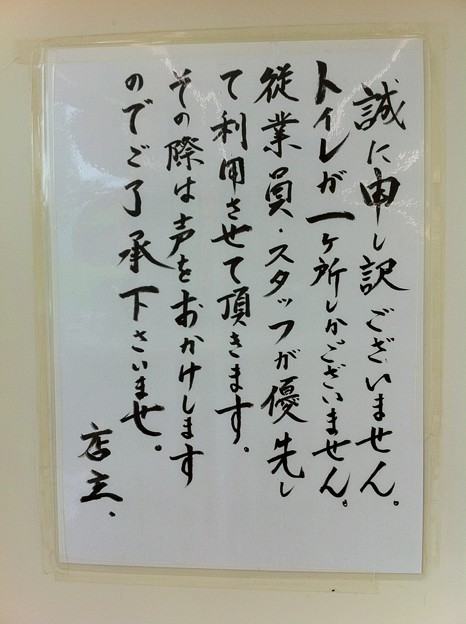 誠に申し訳ございません。
トイレが一ヶ所しかございません。
従業員・スタッフが優先し
て利用させて頂きます。
その際は声をおかけします
のでご了承下さいませ。
店主.